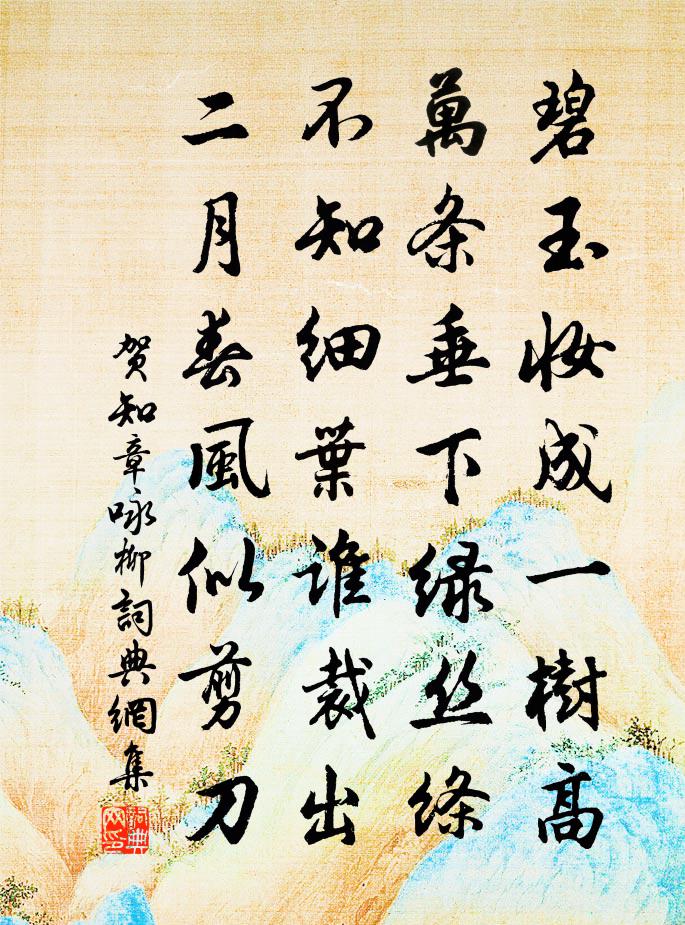 碧玉妆成一樹高
萬条垂下绿丝絛
不知细葉誰裁出
二月春風似剪刀
贺知章咏柳詞典網集
詞典网印